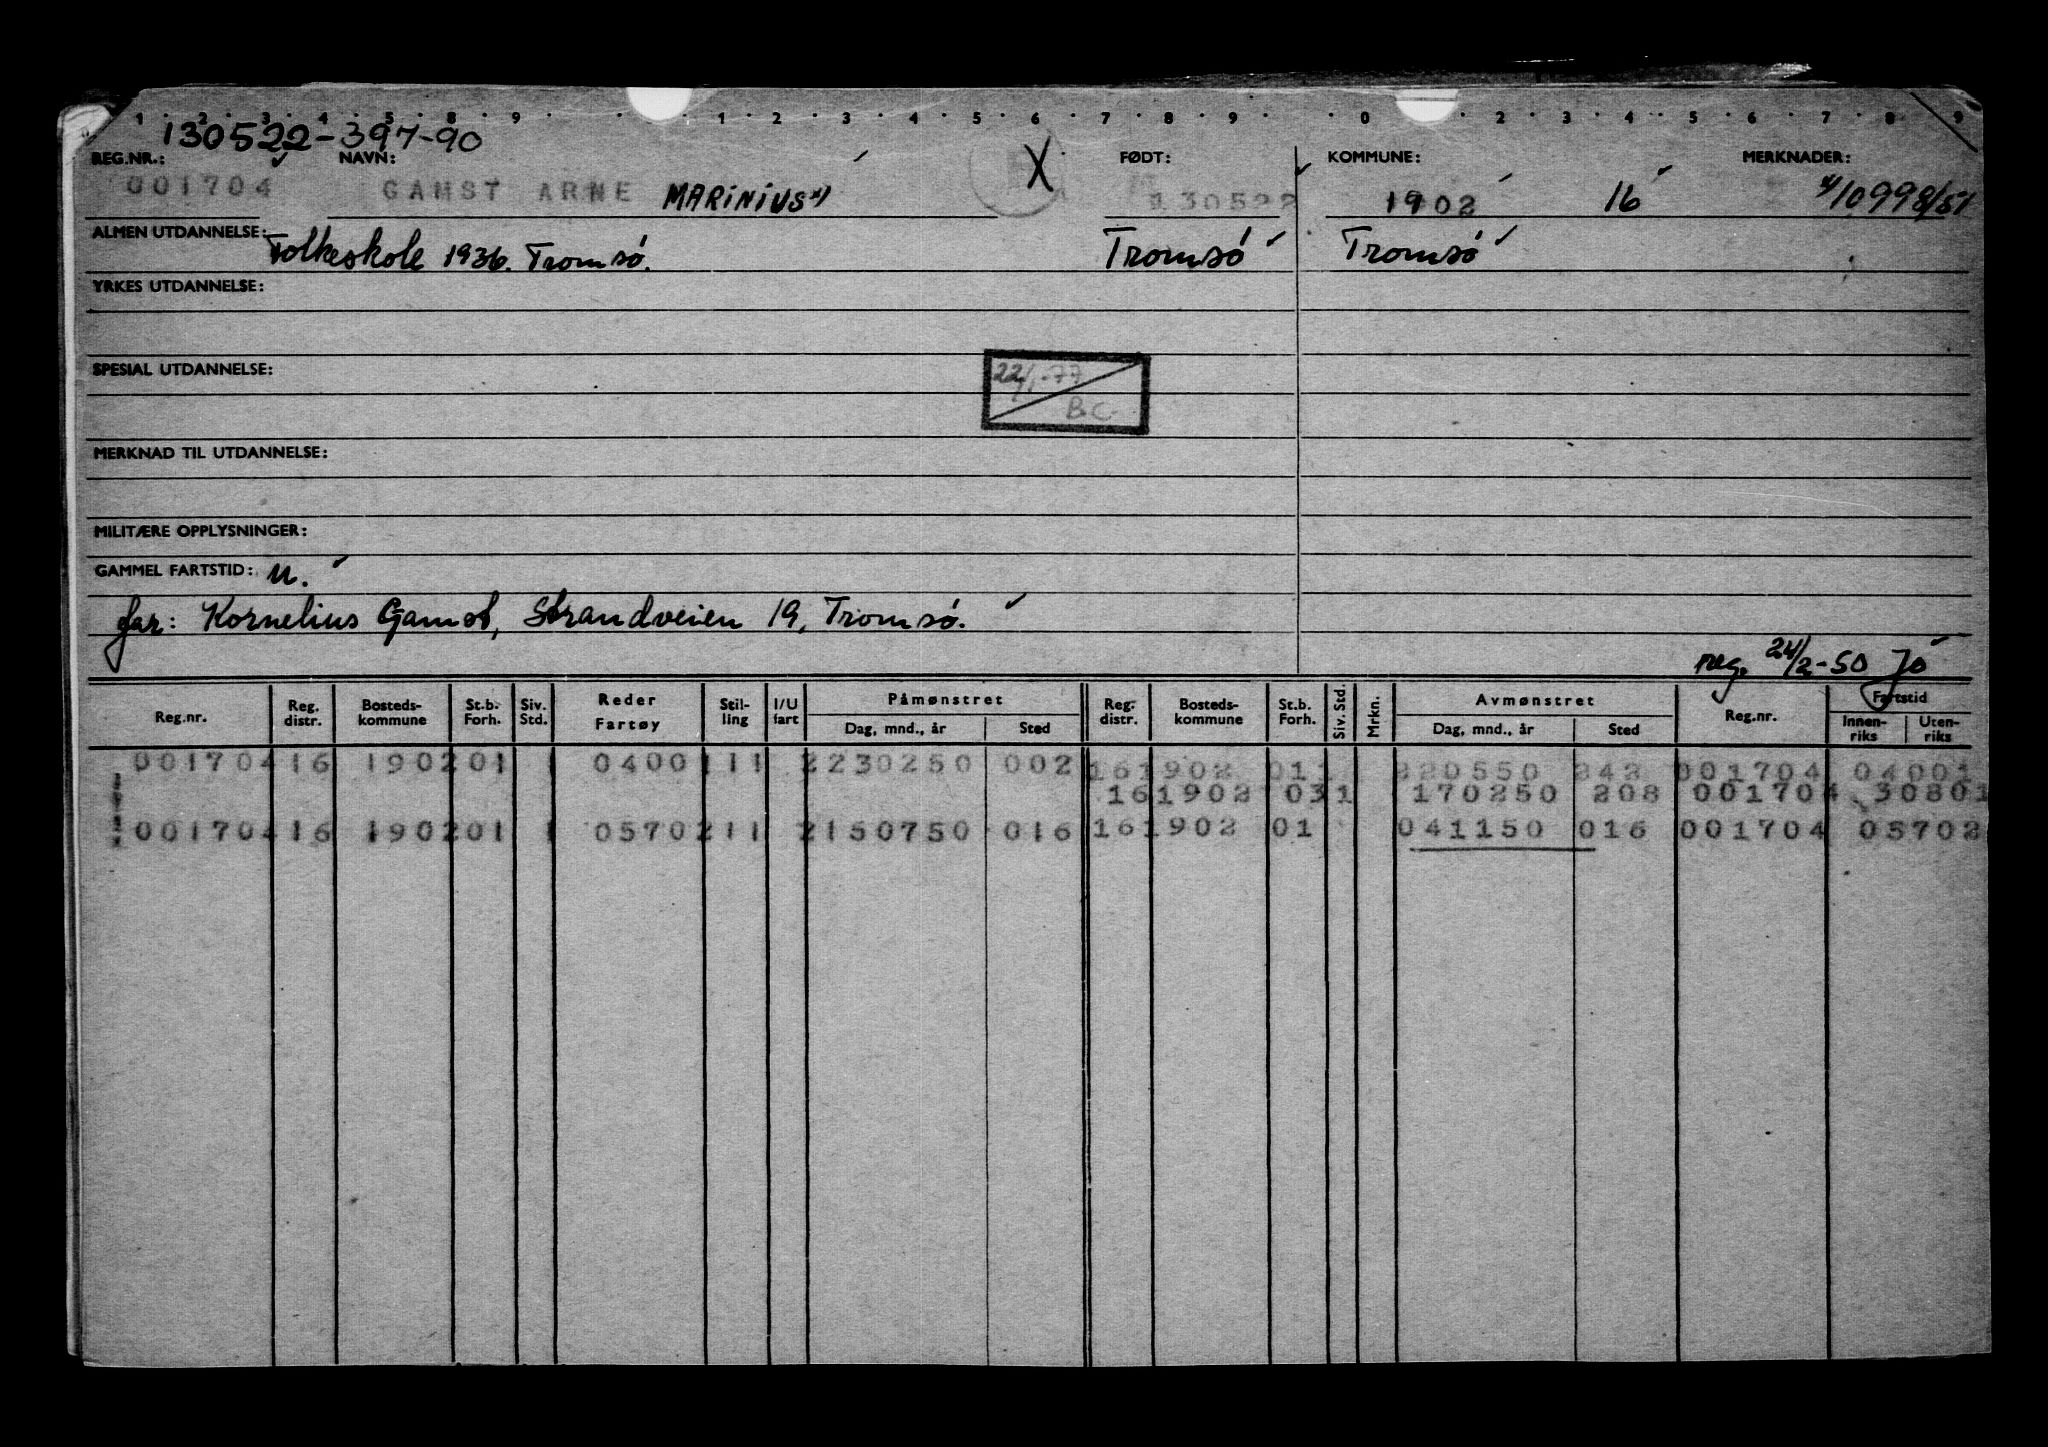 1 · 2 · 3 · 4 · 5 · 8 · 9 · · · 1 · 2 · 3 · 4 · 5 · 6 · 7 · 8 · 9 · · 0 · · 2 · 3 · 4 · · 5 · 6 · 7 · 8 · 9
130522-397-90
REG.NR.: NAVN: X FØDT: KOMMUNE: MERKNADER:
001704 GAMST ARNE MARINIUS x) 130522 1902 16 x/10998/51
ALMEN UTDANNELSE: Folkeskole 1936. Tromsø. Tromsø Tromsø
YRKES UTDANNELSE:
SPESIAL UTDANNELSE: 22/1-77
B.C.
MERKNAD TIL UTDANNELSE:
MILITÆRE OPPLYSNINGER:
GAMMEL FARTSTID: U.
far: Kornelius Gamst, Strandveien 19, Tromsø.
reg. 24/2-50 Jó
Reg.nr. Reg. distr. Bosteds-kommune St.b. Forh. Siv. Std. Reder Fartøy Stil-ling I/U fart Påmønstret Dag, mnd., år Sted Reg. distr. Bosteds-kommune St.b. Forh. Siv. Std. Mrkn. Avmønstret Dag, mnd., år Sted Reg.nr. Fartstid Innen-riks Uten-riks
001704 16 1902 01 1 0400 1 11 2 230250 002 16 1902 01 1 220550 242 001704 04001
16 1902 03 1 170250 208 001704 30801
001704 16 1902 01 1 0570 2 11 2 150750 016 16 1902 01 041150 016 001704 03702